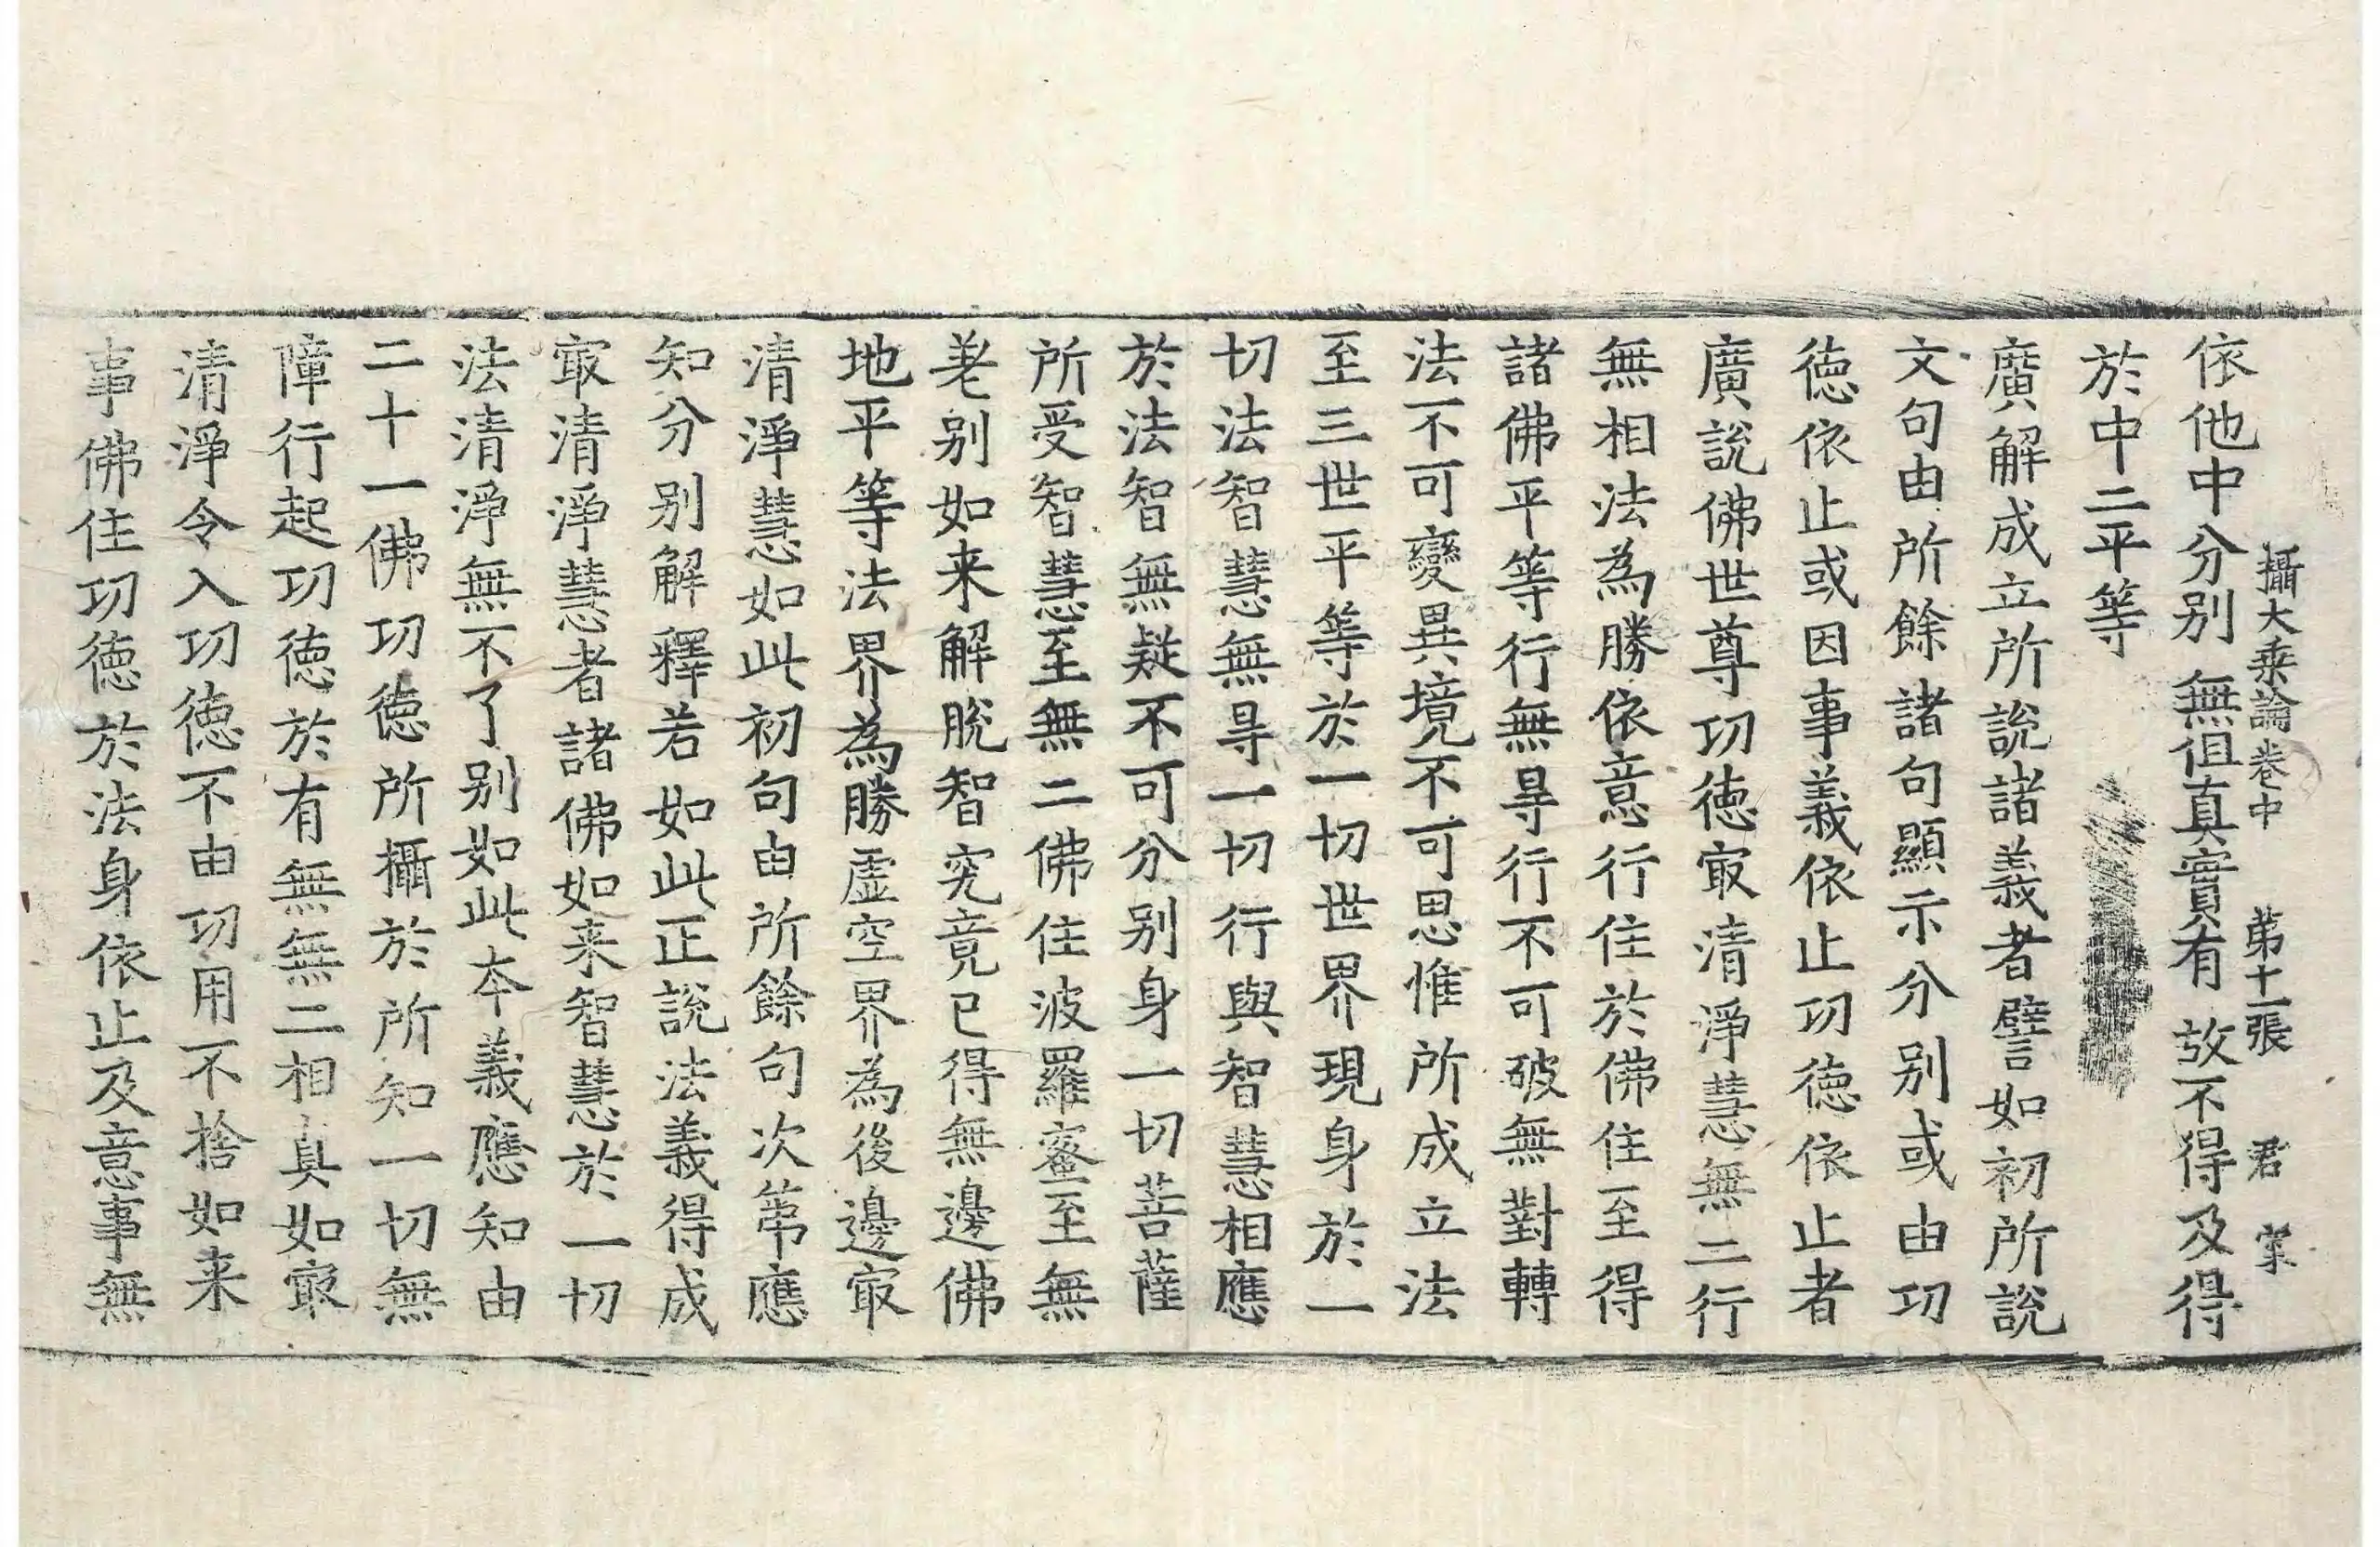 攝大乗論卷中　第十一張　君　
依他中分别　無但真實有　故不得及得
於中二平等
廣解成立所說諸義者譬如初所說
文句由所餘諸句顯示分别或由功
徳依止或因事義依止功徳依止者
廣說佛世尊功徳㝡清淨慧無二行
無相法為勝依意行住於佛住至得
諸佛平等行無㝵行不可破無對轉
法不可變異境不可思惟所成立法
至三世平等於一切世界現身於一
切法智慧無㝵一切行與智慧相應
於法智無疑不可分别身一切菩薩
所受智慧至無二佛住波羅蜜至無
差别如来解脫智究竟已得無邊佛
地平等法界為勝虛空界為後邊㝡
清淨慧如此初句由所餘句次第應
知分别解釋若如此正說法義得成
㝡清淨慧者諸佛如来智慧於一切
法清淨無不了别如此本義應知由
二十一佛功徳所攝於所知一切無
障行起功徳於有無無二相真如㝡
清淨令入功徳不由功用不捨如来
事佛住功徳於法身依止及意事無